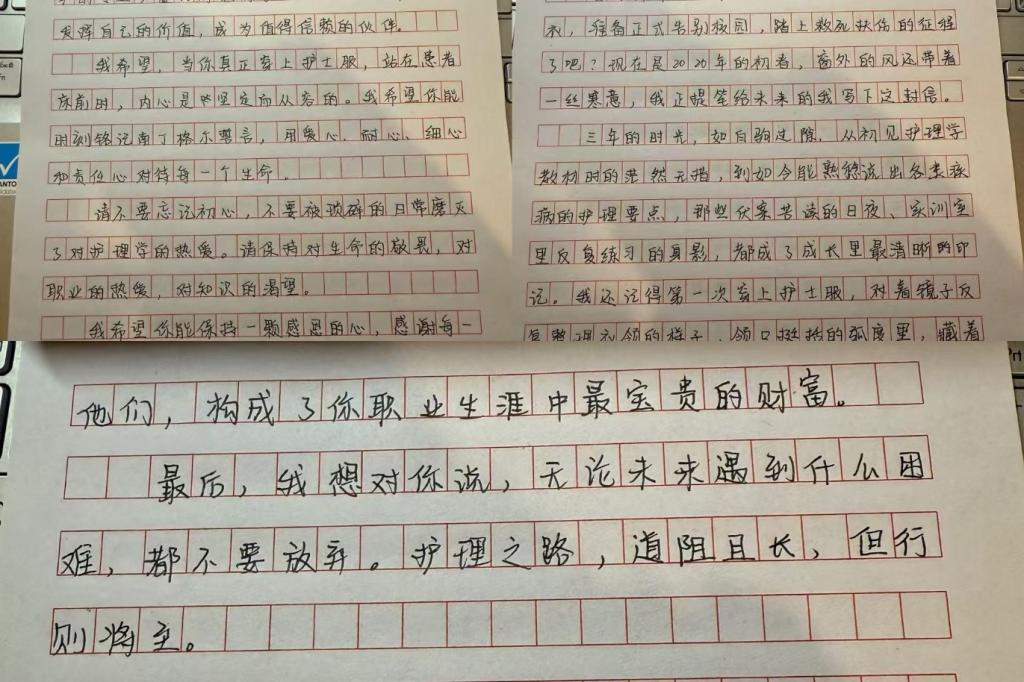 发挥自己的价值，成为值得信赖的伙伴。
我希望，当你真正穿上护士服，站在患者
床前时，内心是坚定而从容的。我希望你能
时刻铭记南丁格尔誓言，用爱心、耐心、细心
和责任心对待每一个生命。
请不要忘记初心，不要被琐碎的日常磨灭
了对护理学的热爱。请保持对生命的敬畏，对
职业的热爱，对知识的渴望。
我希望你能保持一颗感恩的心，感谢每一
衣，准备正式告别校园，踏上救死扶伤的征程
了吧？现在是2020年的初春，窗外的风还带着
一丝寒意，我正提笔给未来的我写下这封信。
三年的时光，如白驹过隙，从初见护理学
教材时的茫然无措，到如今能熟稔说出各类疾
病的护理要点，那些伏案苦读的日夜、实训室
里反复练习的身影，都成了成长里最清晰的印
记。我还记得第一次穿上护士服，对着镜子反
复整理衣领的样子，领口挺括的弧度里，藏着
他们，构成了你职业生涯中最宝贵的财富。
最后，我想对你说，无论未来遇到什么困
难，都不要放弃。护理之路，道阻且长，但行
则将至。